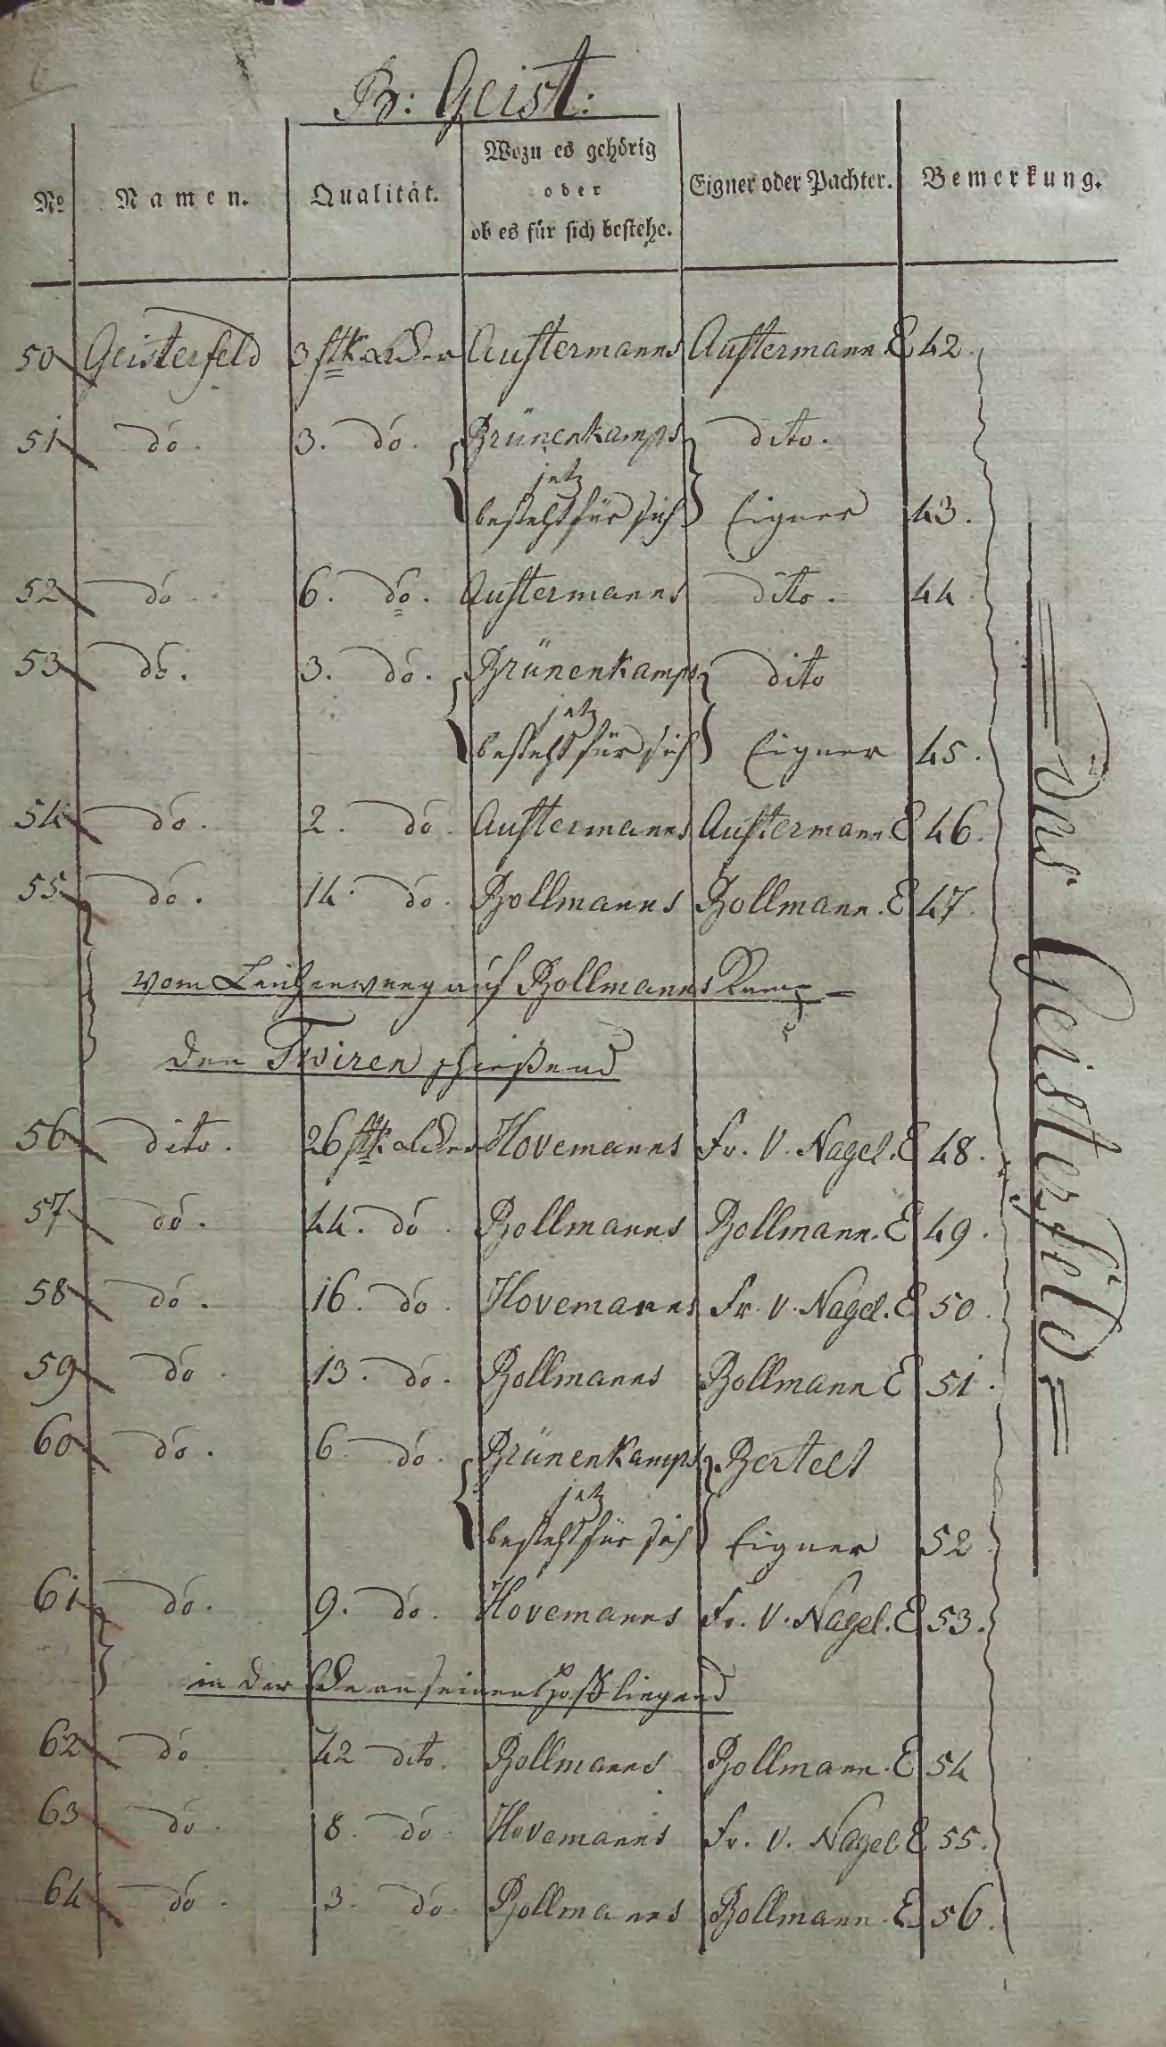 B: Geist:
No Namen. Qualität. Wozu es gehörig oder ob es für sich bestehe. Eigner oder Pachter. Bemerkung.
50 Geisterfeld 3 stk acker Austermanns Austermann. E 42.
51 do. 3. do. Brünenkamps dito.
jetz
besteht für sich Eigner 43.
52 do 6. do. Austermanns dito. 44
53 do. 3. do. Brünenkamps dito
jetz
besteht für sich Eigner 45.
54 do. 2. do. Austermanns Austermann E 46.
55 do. 14. do. Bollmanns Bollmann. E 47.
vom Leichenweg auf Bollmanns Kamp
den Twiren schießend
56 dito. 26 stk acker Hovemanns Fr. V. Nagel. E 48.
57 do. 44. do. Bollmanns Bollmann. E 49.
58 do. 16. do. Hovemanns Fr. V. Nagel. E 50.
59 do. 13. do. Bollmanns Bollmann E 51.
60 do. 6. do. Brünenkamps Bertelt
jetz
besteht für sich Eigner 52
61 do. 9. do. Hovemanns Fr. V. Nagel. E 53.
in der an seinen Hoff liegend
62 do 42 dito. Bollmanns Bollmann. E 54
63 do. 8. do Hovemanns Fr. V. Nagel E 55.
64 do. 3. do. Bollmanns Bollmann. E 56.
Das Geisterfeld